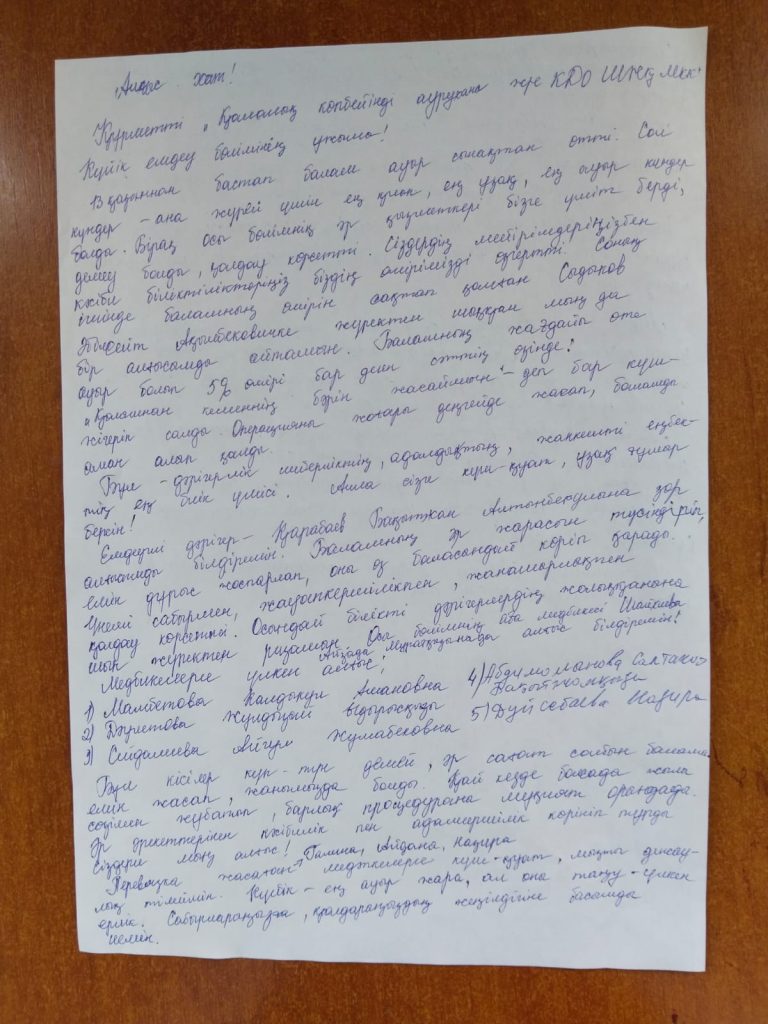 Алғыс хат!
Құрметті „Қалалық көпбейінді аурухана" жје КДО ШЖҚ МКК"
Күйік емдеу бөлімінің ұжымы!
13 қазыннан бастап балам ауыр сынақтан өтті. Сол
күндер – ана жүрегі үшін ең қиын, ең ұзақ, ең ауыр күндер
болды. Бірақ осы бөлімнің әр қызметкері бізге үміт берді,
демеу болды, қолдау көрсетті. Сіздердің мейірімдеріңізбен
кәсіби біліктіліктеріңіз біздің өмірімізді өзгертті. Соның
ішінде баламның өмірін сақтап қалған Садыков
Әбілсейіт Ақылбековичке жүректен шыққан мың да
бір алғысымды айтамын. Баламның жағдайы өте
ауыр болып 5% өмірі бар деген сәттің өзінде!
"Қолымнан келгеннің бәрін жасаймын" – деп бар күш-
жігерін салды. Операцияны жоғары деңгейде жасап, баламды
аман алып қалды.
Бұл – дәрігерлік шеберліктің, адалдықтың, жанкешті еңбек-
тің ең биік үлгісі. Алла сізге күш-қуат, ұзақ ғұмыр
берсін!
Емдеуші дәрігер – Қарабаев Бақытжан Алтынбекұлына зор
алғысымды білдіремін. Баламның әр жарасын түсіндіріп,
емін дұрыс жоспарлап, оны өз баласындай көріп қарады.
Үнемі сабырмен, жауапкершілікпен, жанашырлықпен
қолдау көрсетті. Осындай білікті дәрігерлердің жолыққанына
шын жүректен ризамын. Осы бөлімнің аға медбикесі Шайкиева
Айзада Мұратқызына да алғыс білдіремін!
Медбикелерге үлкен алғыс!
1) Мамбетова Калдыкул Амановна 4) Абдимомынова Салтанат
Бақытжанқызы
2) Дәулетова Жұлдызай Ыдырысқызы
3) Сейдалиева Айгүл Жумабековна 5) Дүйсебаева Назира
Бұл кісілер күн-түн демей, әр сағат сайын балама
емін жасап, жанымызда болды. Қай кезде болсада жылы
сөзімен жұбатып, барлық процедураны мұқият орындады.
Әр әрекеттерінен кәсібилік пен адамгершілік көрініп тұрды
Сіздерге мың алғыс! Галина, Айдана, Назира
Перевязка жасаған медбикелерге күш-қуат, мықты денсау-
лық тілеймін. Күйік – ең ауыр жара, ал оны таңу – үлкен
ерлік. Сабырларыңызға, қолдарыңыздың жеңілдігіне басымды
иемін.